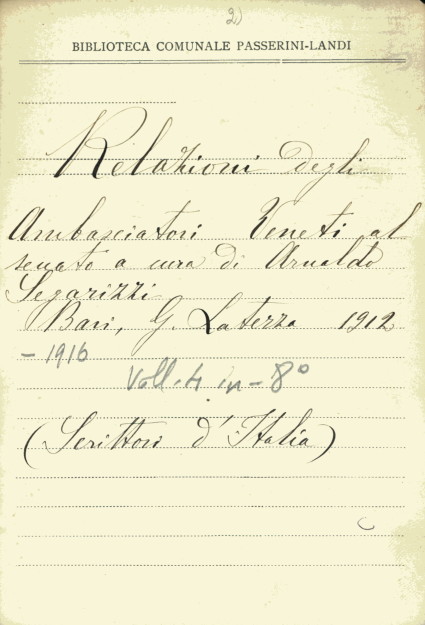 2)
BIBLIOTECA COMUNALE PASSERINI-LANDI
Relazioni degli
Ambasciatori Veneti al
senato a cura di Arnaldo
Segarizzi
Bari, G. Laterza 1912
- 1916
Voll. 4 in - 8°
(Scrittori d'Italia)